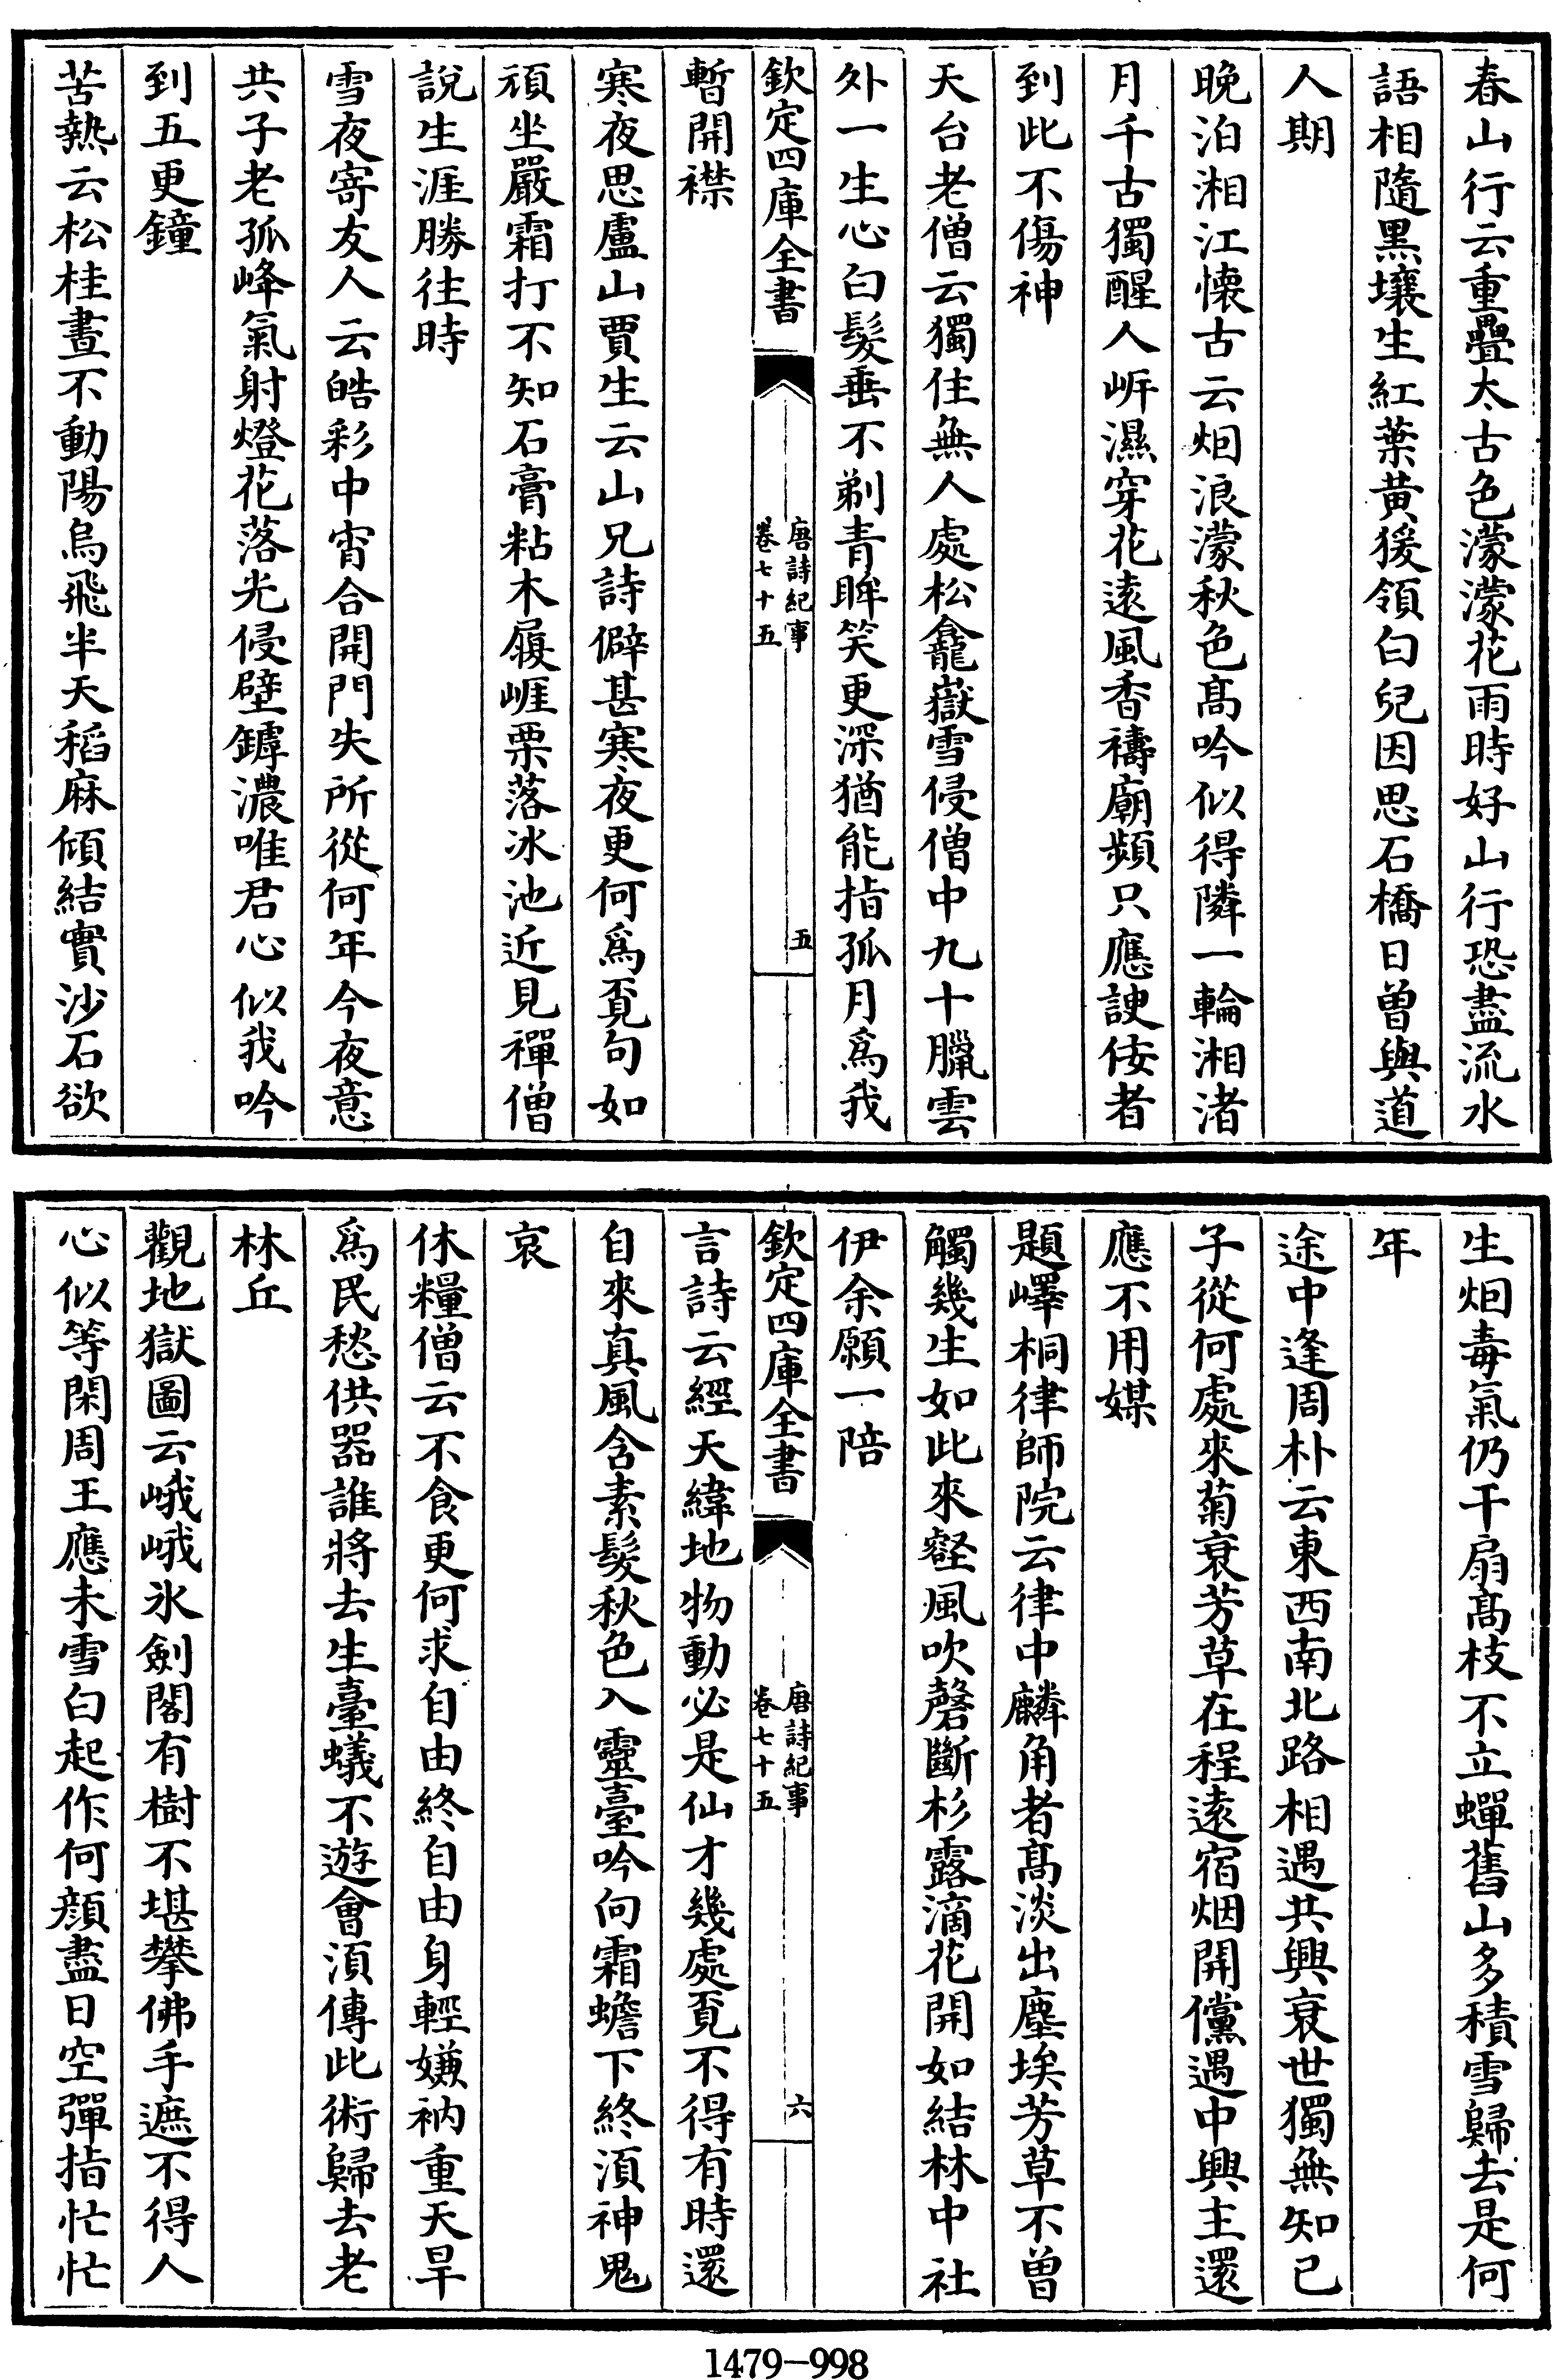 春山行云重疊太古色濛濛花雨時好山行恐盡流水
語相隨黑壤生紅葉黃猨領白兒因思石橋日曽與道
人期
晚泊湘江懷古云烟浪濛秋色高吟似得隣一輪湘渚
月千古獨醒人岍濕穿花遠風香禱廟頻只應諛佞者
到此不傷神
天台老僧云獨住無人處松龕嶽雪侵僧中九十臘雲
外一生心白髮垂不剃青眸笑更深猶能指孤月爲我
欽定四庫全書
唐詩紀事
卷七十五
五
暫開襟
寒夜思盧山賈生云山兄詩僻甚寒夜更何爲覔句如
頑坐嚴霜打不知石膏粘木屐崕栗落冰池近見禪僧
說生涯勝往時
雪夜寄友人云皓彩中宵合開門失所從何年今夜意
共子老孤峰氣射燈花落光侵壁罅濃唯君心似我吟
到五更鐘
苦熱云松桂晝不動陽烏飛半天稻麻傾結實沙石欲
生烟毒氣仍干扇髙枝不立蟬舊山多積雪歸去是何
年
途中逢周朴云東西南北路相遇共興衰世獨無知已
子從何處來菊衰芳草在程遠宿烟開儻遇中興主還
應不用媒
題嶧桐律師院云律中麟角者髙淡出塵埃芳草不曽
觸幾生如此來壑風吹磬斷杉露滴花開如結林中社
伊余願一陪
欽定四庫全書
唐詩紀事
卷七十五
六
言詩云經天緯地物動必是仙才幾處覔不得有時還
自來真風含素髮秋色入靈臺吟向霜蟾下終湏神鬼
哀
休糧僧云不食更何求自由終自由身輕嫌衲重天旱
爲民愁供器誰將去生臺蟻不遊會湏傳此術歸去老
林丘
觀地獄圖云峨峨氷劍閣有樹不堪攀佛手遮不得人
心似等閑周王應未雪白起作何顔盡日空彈指忙忙
1479-998